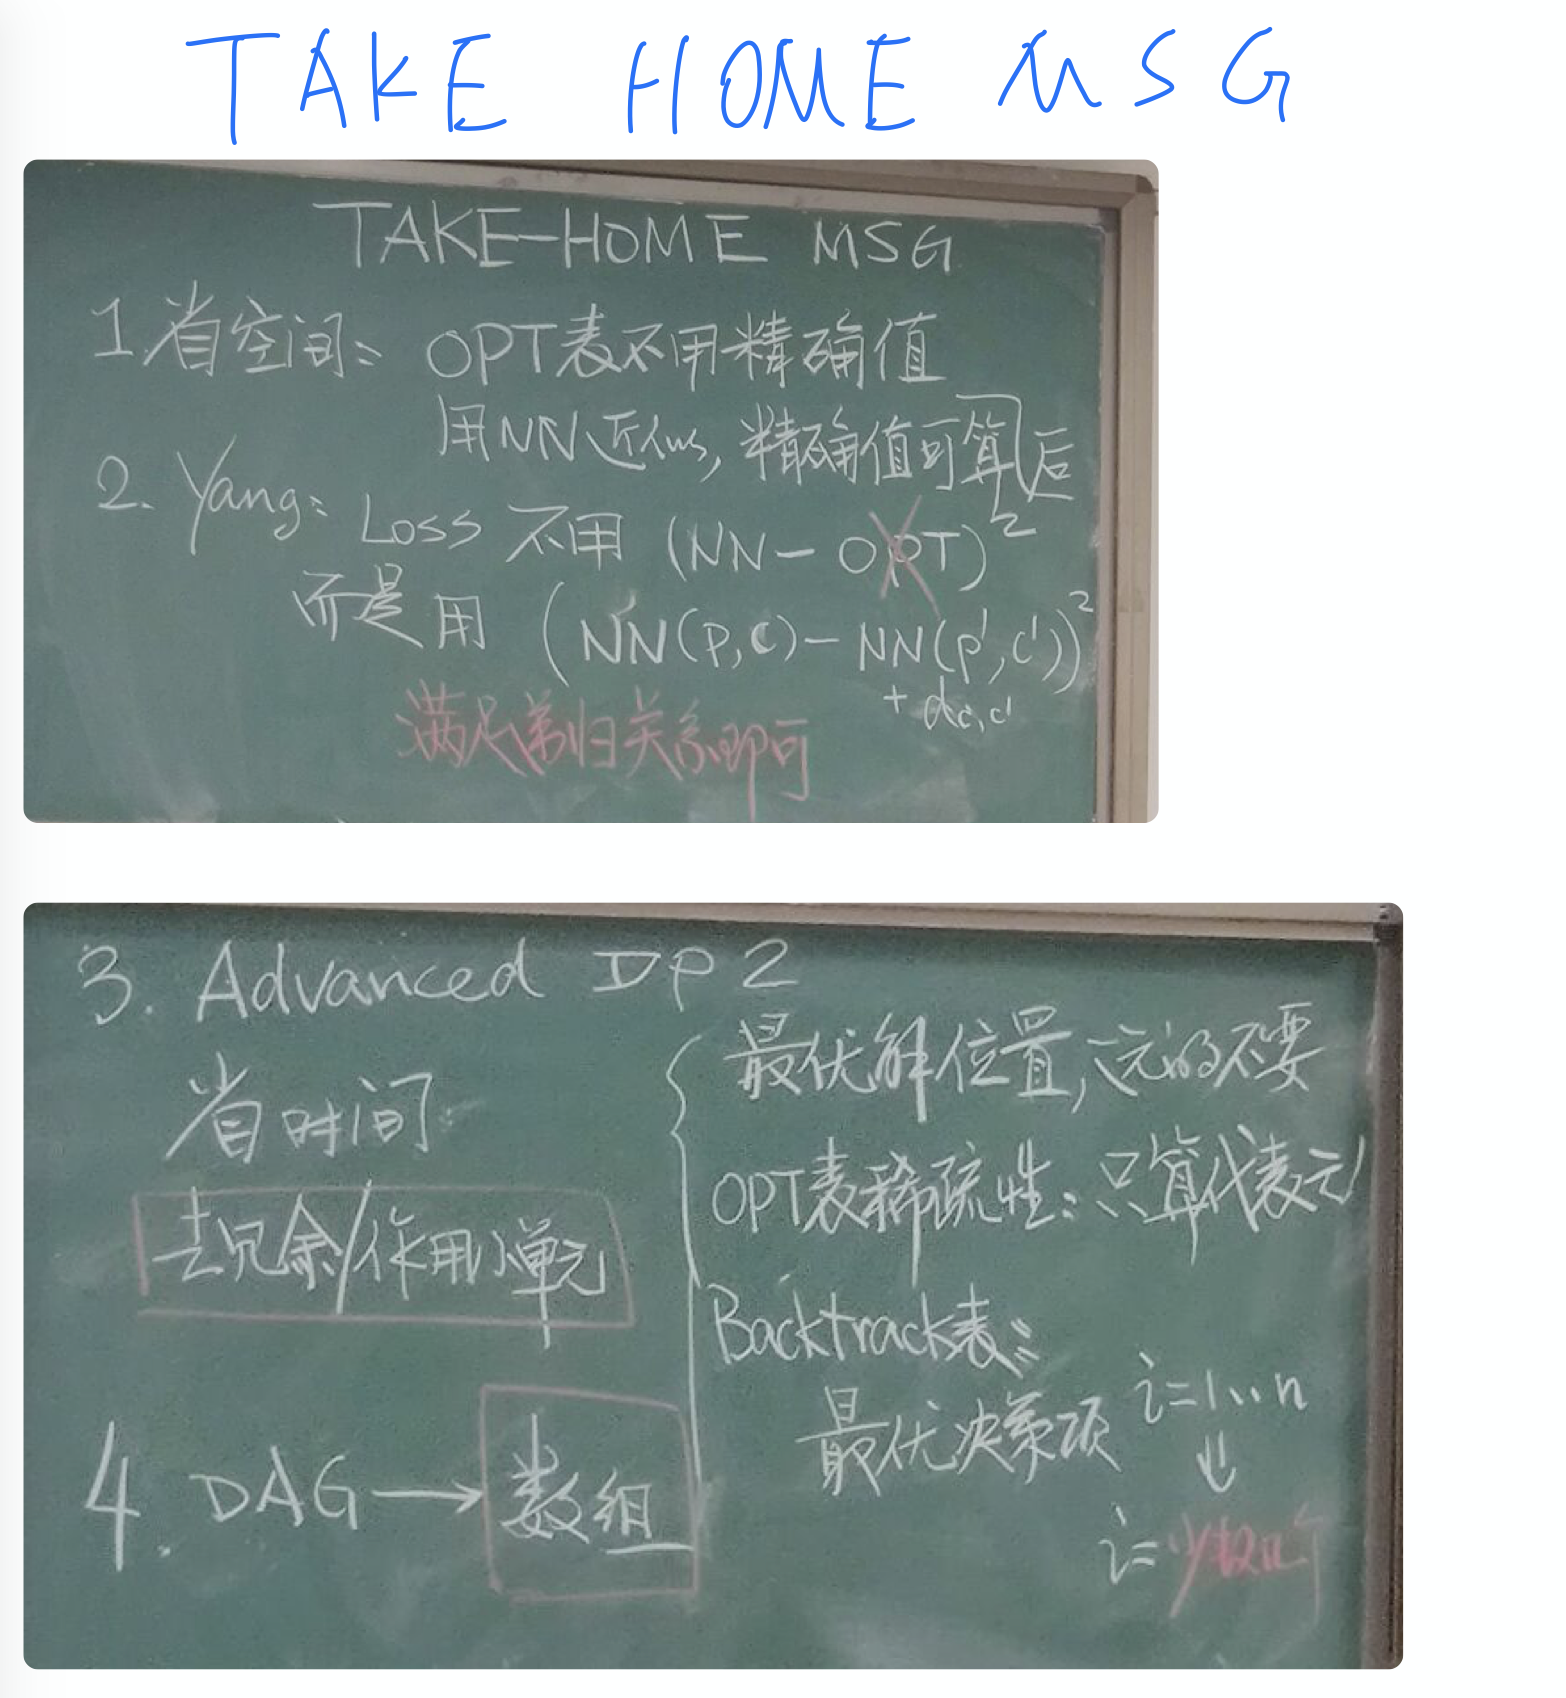 TAKE HOME MSG
TAKE-HOME MSG
1.省空间: OPT表不用精确值
用NN近似, 精确值可算后
2. Yang: Loss 不用 (NN - OPT)²
而是用 (NN(P,C) - NN(P',C'))²
+ dc,c'
满足递归关系即可
3. Advanced DP 2
省时间:
去冗余/作用小单元
最优解位置,冗的不要
OPT表稀疏性: 只算代表元
Backtrack表:
最优决策项 i=1..n
⇓
i=少数几个
4. DAG → 数组